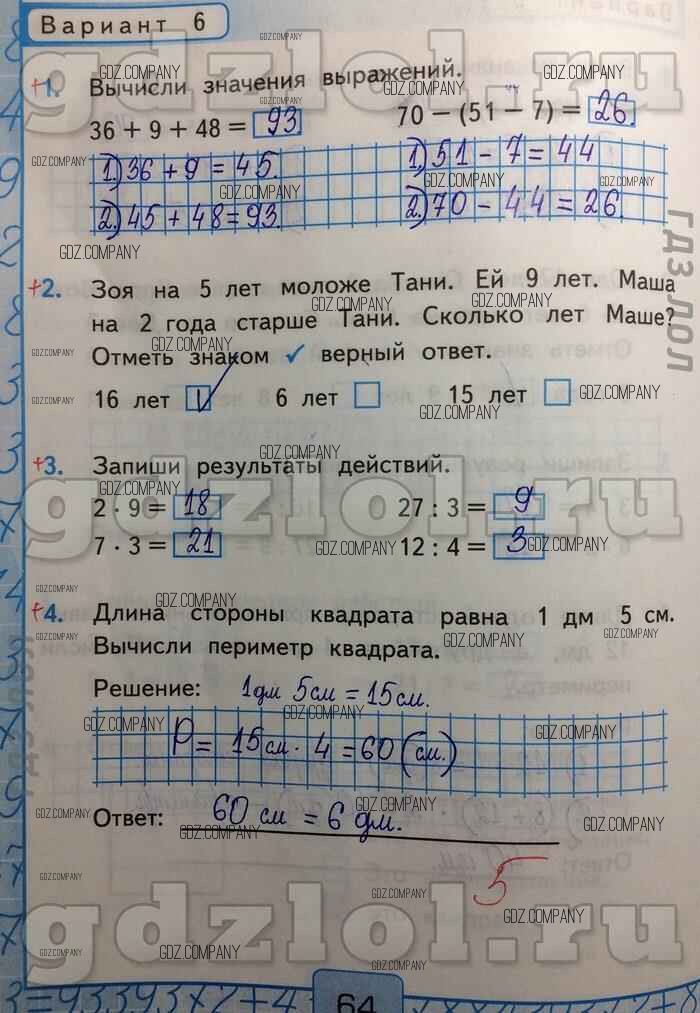 Вариант 6
+1. Вычисли значения выражений.
36 + 9 + 48 = 93 70 − (51 − 7) = 26.
1) 36 + 9 = 45. 1) 51 − 7 = 44
2) 45 + 48 = 93. 2) 70 − 44 = 26.
+2. Зоя на 5 лет моложе Тани. Ей 9 лет. Маша
на 2 года старше Тани. Сколько лет Маше?
Отметь знаком ✓ верный ответ.
16 лет ✓ 6 лет 15 лет
+3. Запиши результаты действий.
2 · 9 = 18 27 : 3 = 9
7 · 3 = 21 12 : 4 = 3
+4. Длина стороны квадрата равна 1 дм 5 см.
Вычисли периметр квадрата.
Решение: 1дм 5см = 15см.
P = 15см · 4 = 60 (см.)
Ответ: 60 см = 6 дм.
5
64
gdzlol.ru
gdzlol.ru
gdzlol.ru
ГДЗ ЛОЛ
GDZ.COMPANY